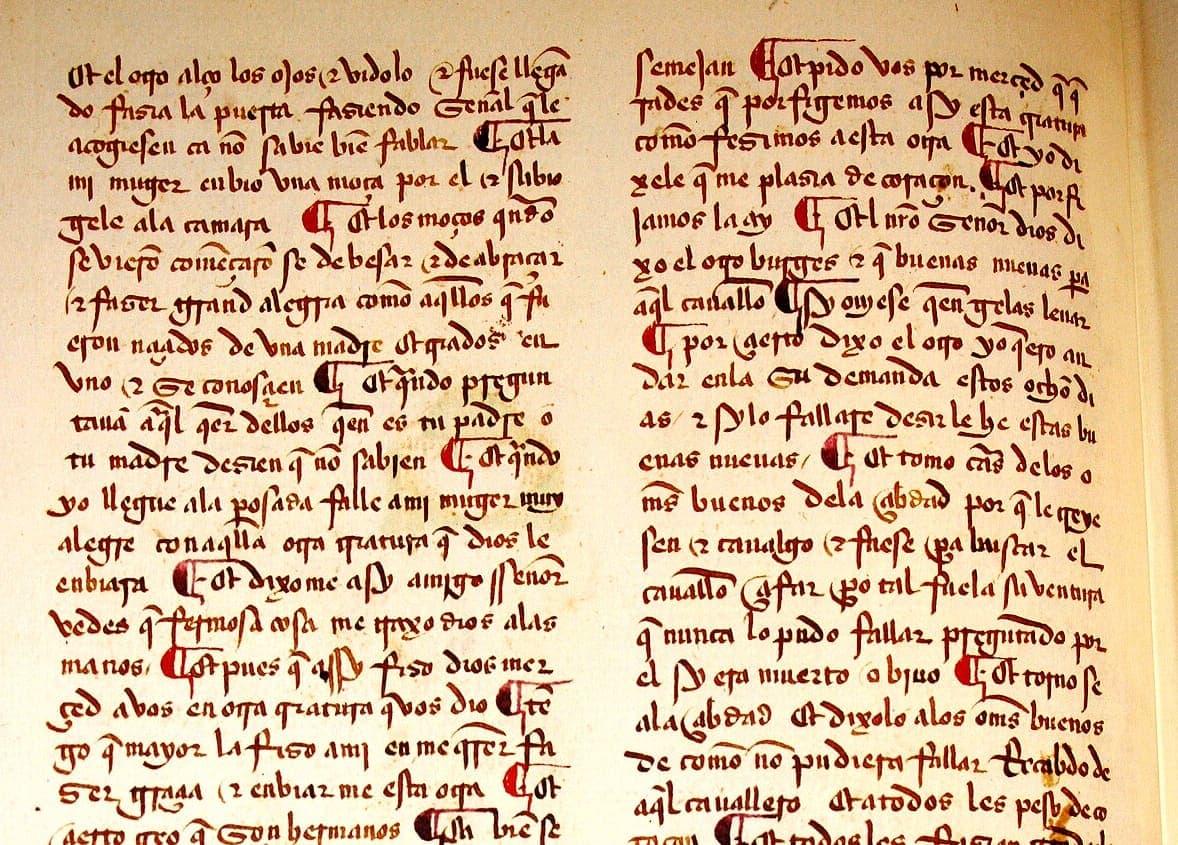 Et el otro alço los ojos ⁊ vidolo ⁊ fuese llegã
do fasia la puerta fasiendo señal q̃ le
acogiesen ca nõ sabie biẽ fablar ¶ Et la
mi muger enbio vna moça por el ⁊ subio
gele ala camara ¶ Et los moços qñdo
se vierõ começarõ se de besar ⁊ de abraçar
⁊ faser grand alegria como aq̃llos q̃ fu
eron naçidos de vna madre et criados en
vno ⁊ se conosçien ¶ Et q̃ndo pregun
tauã aq̃l q̃er dellos q̃en es tu padre o
tu madre desien q̃ nõ sabien ¶ Et q̃ndo
yo llegue ala posada falle a mi muger muy
alegre con aq̃lla otra criatura q̃ dios le
enbiara ¶ Et dixome asy amigo señor
vedes q̃ fermosa cosa me traxo dios alas
manos ¶ Et pues q̃ asy fiso dios mer
çed a vos en otra criatura q̃ vos dio ¶ Tẽ
go q̃ mayor la fiso a mi en me q̃rer fa
ser graçia ⁊ enbiar me esta otra ¶ Et
çierto creo q̃ son hermanos ¶ Ca biẽ se
semejan ¶ Et pido vos por merçed q̃ q̃
rades q̃ porfigemos a sy esta criatura
como fesimos a esta otra ¶ Et yo di
xele q̃ me plasia de coraçon ¶ Et porfi
jamos lo asy ¶ Et nr̃o señor dios di
xo el otro burges ⁊ q̃ buenas nueuas pa
aq̃l cauallo ¶ Sy ouiese q̃en gelas leuar
¶ por çierto dixo el otro yo q̃ero an
dar en la su demanda estos ocho di
as ⁊ sy lo fallare desir le he estas bu
enas nueuas ¶ Et tomo cãs de los o
mẽs buenos dela çibdad por q̃ le creye
sen ⁊ caualgo ⁊ fuese pa buscar el
cauallo çifar po tal fue la su ventura
q̃ nunca lo pudo fallar preguntado por
el sy era muerto o biuo ¶ Et torno se
ala çibdad Et dixolo alos oms̃ buenos
de como nõ pudiera fallar recabdo de
aq̃l cauallero Et a todos les peso de co
raçon ¶ Et todos los